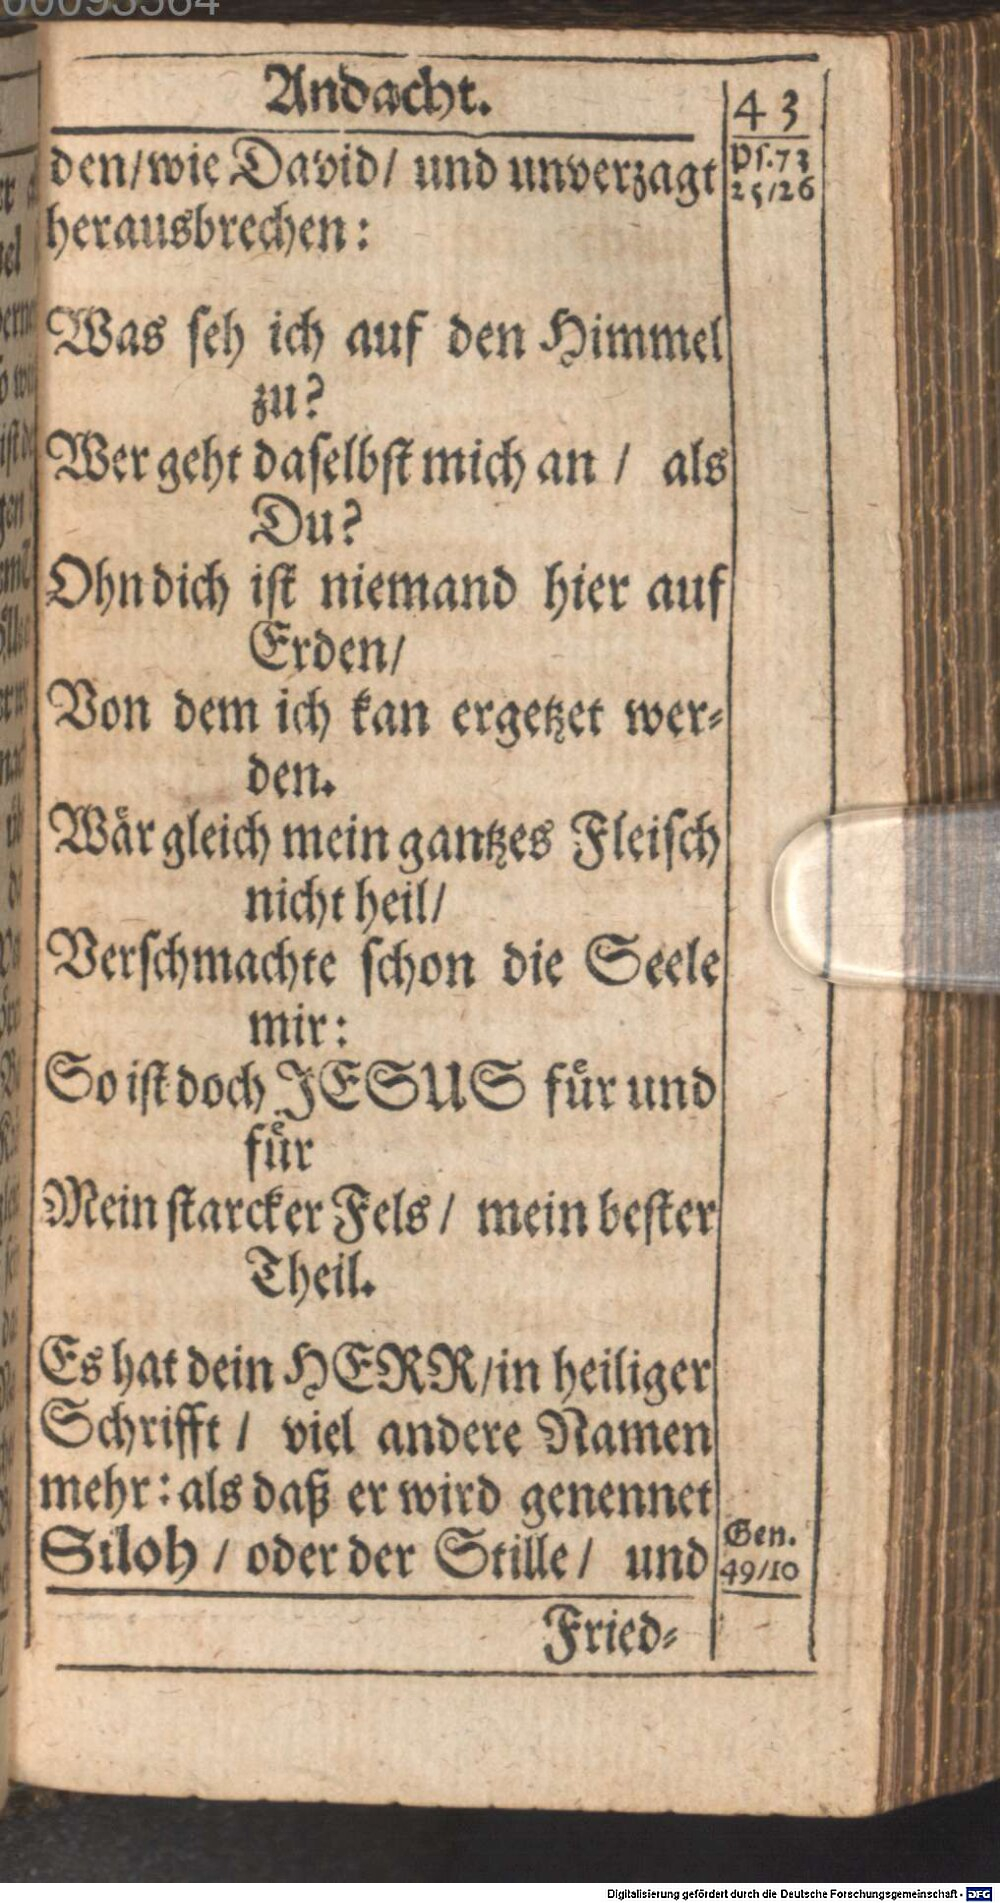 Andacht. 43
den/wie David/ und unverzagt
Ps.73
25/26
herausbrechen:
Was seh ich auf den Himmel
zu?
Wer geht daselbst mich an / als
Du?
Ohn dich ist niemand hier auf
Erden/
Von dem ich kan ergetzet wer-
den.
Wår gleich mein gantzes Fleisch
nicht heil/
Verschmachte schon die Seele
mir:
So ist doch JESUS fuͤr und
fuͤr
Mein starcker Fels / mein bester
Theil.
Es hat dein HERR/in heiliger
Schrifft / viel andere Namen
mehr: als daß er wird genennet
Siloh / oder der Stille / und
Gen.
49/10
Fried-
Digitalisierung gefördert durch die Deutsche Forschungsgemeinschaft - DFG